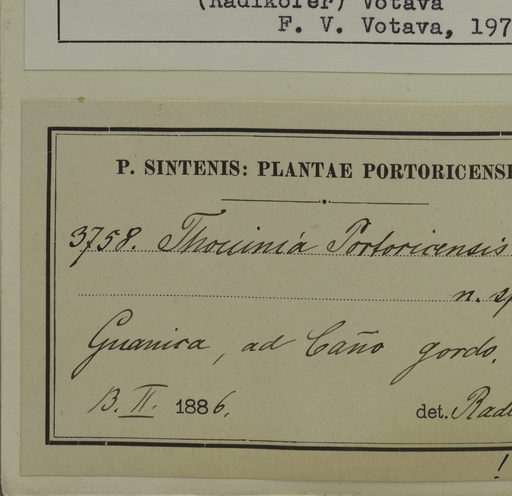 (Radlkofer) Votava
F. V. Votava, 197
P. SINTENIS: PLANTAE PORTORICENS
3758. Thouinia Portoricensis
n. sp
Guanica, ad Caño gordo.
13. II. 1886.
det. Radl
!